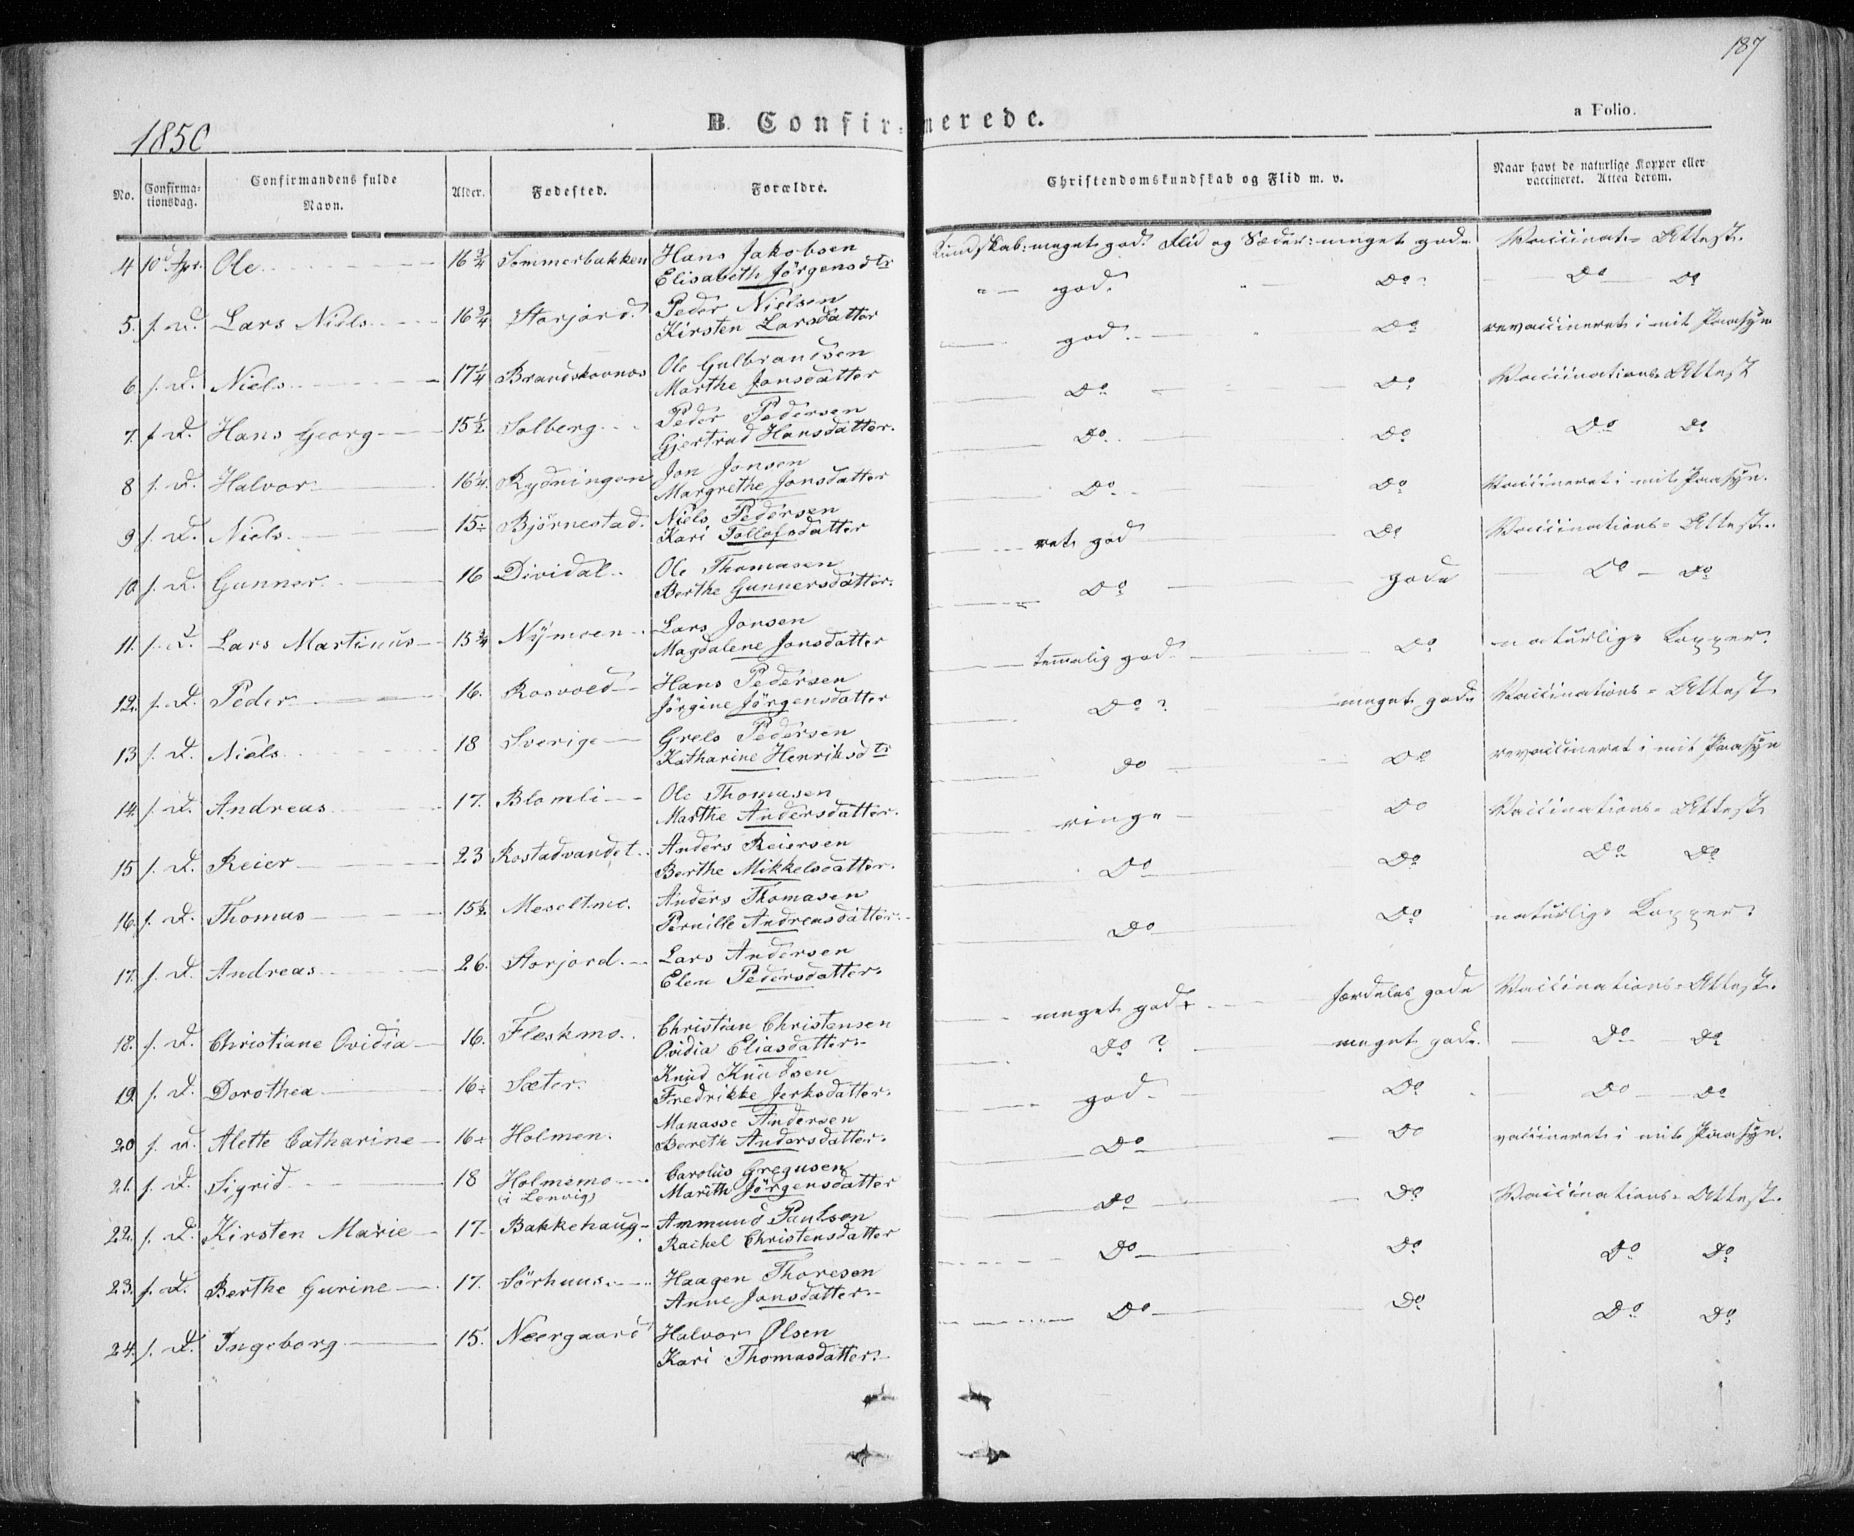 187
1850
B. Confirmerede.
a Folio.
No.
Confirma-
tionsdag.
Confirmandens fulde
Navn.
Alder.
Fødested.
Forældre.
Christendomskundskab og Flid m. v.
Naar havt de naturlige Kopper eller
vaccineret. Attea derom.
4 Ole 16 3/4 Sommerbakken Hans Jakobsen
Elisabeth Jörgensdtr
Kundskab: meget god. Flid og Sæder: meget gode Vaccinat. Attest.
5. f. D. Lars Niels 16 3/4 Storjord. Peder Nielsen
Kirsten Larsdatter
" god. " Do Do Do
6. f. D. Niels 17 1/4 Brandskovnes Ole Gulbrandsen
Marthe Jonsdatter
god. " Do revaccineret i mit Paasyn
7. f. D. Hans Georg 15 1/2 Solberg Peder Pedersen
Gjertrud Hansdatter.
Do Do Vaccinations-Attest
8 f. D. Halvor 16 1/4 Rydningen Jon Jonsen
Margrethe Jonsdatter
Do. Do Do Do
9 f. D. Niels 15 Björnestad. Niels Pedersen
Kari Tollofsdatter
Do Do Vaccineret i mit Paasyn.
10 f. D. Gunner 16 Dividal Ole Thomasen
Berthe Gunnersdatter.
ret god Do Vaccinations-Attest.
11. f. D. Lars Martinus 15 3/4 Nÿmoen Lars Jonsen
Magdalene Jonsdatter
Do gode Do Do
12. f. D. Peder 16. Rosvold Hans Pedersen
Jörgine Jörgensdatter
temmelig god. Do naturlige Kopper.
13 f. D. Niels 18 Sverige Grels Pedersen
Katharine Henriksdtr
Do ? meget gode Vaccinations-Attest
14. f. D. Andreas 17. Blomli Ole Thomasen
Marthe Andersdatter.
do Do revaccineret i mit Paasyn
15 f. D. Reier 23 Rostadvandet Anders Reiersen
Berthe Mikkelsdatter.
ringe Do Vaccinations-Attest
16. f. D. Thomas 15 1/2 Meseltmo. Anders Thomasen
Pernille Andreasdatter.
Do Do Do Do
17. f. D. Andreas 26. Storjord. Lars Andersen
Elen Pedersdatter.
Do Do naturlige Kopper.
18. f. D. Christiane Ovidia 16. Fleskmo. Christian Christensen
Ovidia Eliasdatter.
meget god særdeles gode Vaccinations-Attest.
19. f. D. Dorothea 16 Sæter. Knud Knudsen
Fredrikke Jerksdatter.
Do ? meget gode. Do Do
20 f. D. Alette Catharine 16 Holmen. Manasse Andersen
Bereth Andersdatter.
god Do Do Do
21. f. D. Sigrid 18 Holmemo Carolus Gregusen
(i Lenvig) Marith Jörgensdatter
Do Do vaccineret i mit Paasyn.
22. f. D. Kirsten Marie 17 Bakkehaug Ammund Paulsen
Rachel Christensdatter
Do Do Vaccinations-Attest.
23. f. D. Berthe Gurine 17. Sörhuus Haagen Thoresen
Anne Jonsdatter.
Do Do Do Do
24. f. D. Ingeborg 15. Neergaard Halvor Olsen
Kari Thomasdatter.
Do Do Do Do